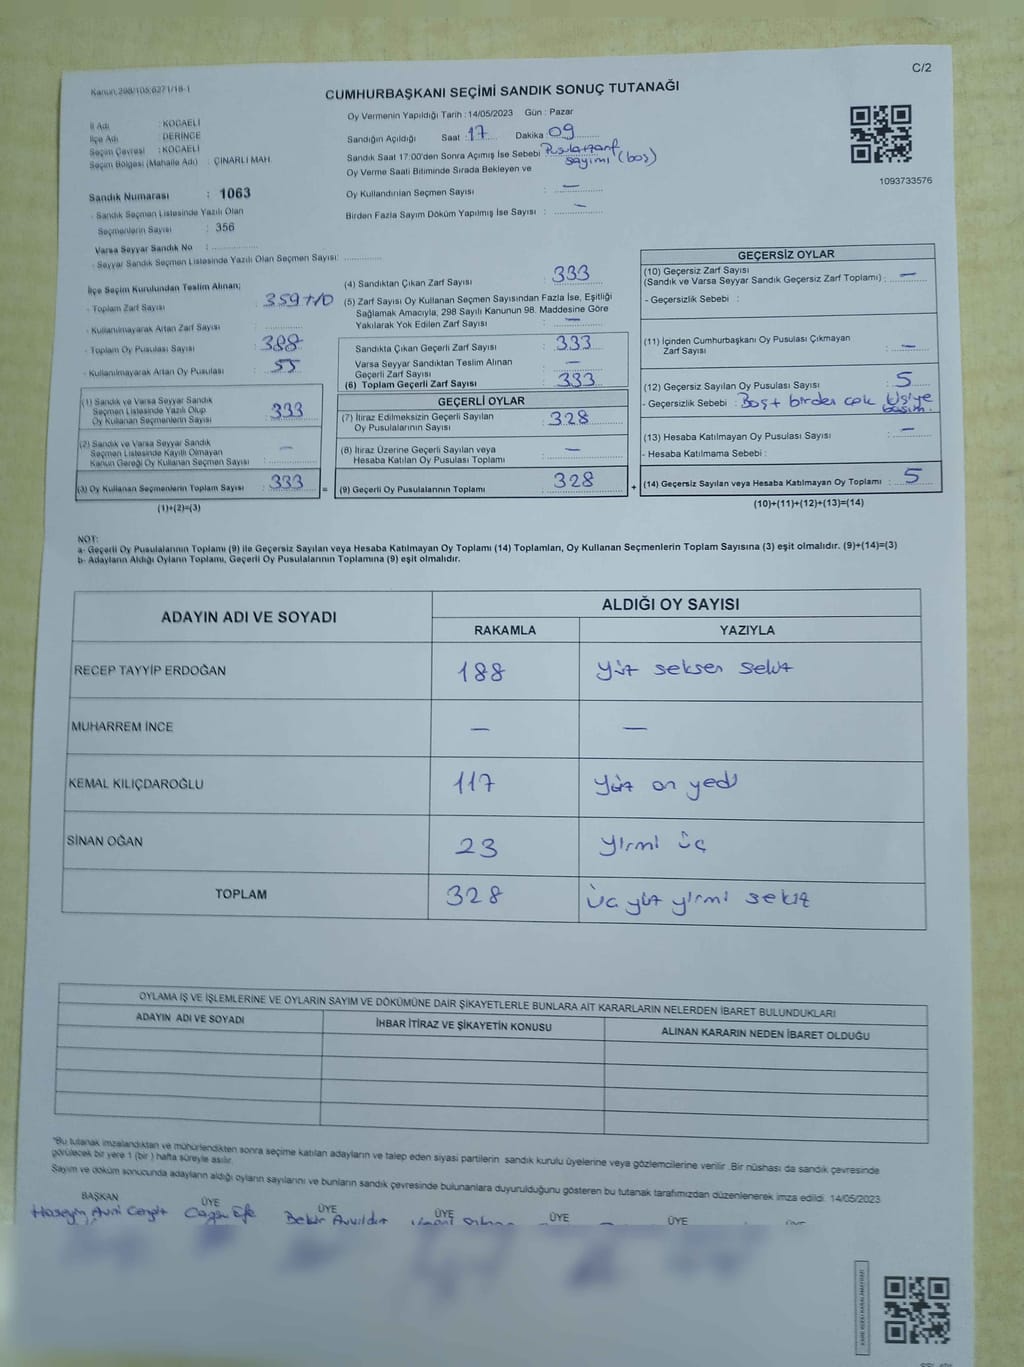 C/2
Kanun:298/105;6271/18-1
CUMHURBAŞKANI SEÇİMİ SANDIK SONUÇ TUTANAĞI
İl Adı : KOCAELİ
İlçe Adı : DERİNCE
Seçim Çevresi : KOCAELİ
Seçim Bölgesi (Mahalle Adı) : ÇINARLI MAH.
Sandık Numarası : 1063
- Sandık Seçmen Listesinde Yazılı Olan
Seçmenlerin Sayısı : 356
Varsa Seyyar Sandık No :
- Seyyar Sandık Seçmen Listesinde Yazılı Olan Seçmen Sayısı:
Oy Vermenin Yapıldığı Tarih : 14/05/2023 Gün : Pazar
Sandığın Açıldığı Saat : 17 Dakika 09
Sandık Saat 17:00'den Sonra Açımış İse Sebebi Pusula+zarf
sayımı (boş)
Oy Verme Saati Bitiminde Sırada Bekleyen ve
Oy Kullandırılan Seçmen Sayısı : —
Birden Fazla Sayım Döküm Yapılmış İse Sayısı : —
1093733576
İlçe Seçim Kurulundan Teslim Alınan;
- Toplam Zarf Sayısı : 359+10
- Kullanılmayarak Artan Zarf Sayısı :
- Toplam Oy Pusulası Sayısı : 388
- Kullanılmayarak Artan Oy Pusulası : 55
(1) Sandık ve Varsa Seyyar Sandık
Seçmen Listesinde Yazılı Olup
Oy Kullanan Seçmenlerin Sayısı : 333
(2) Sandık ve Varsa Seyyar Sandık
Seçmen Listesinde Kayıtlı Olmayan
Kanun Gereği Oy Kullanan Seçmen Sayısı : —
(3) Oy Kullanan Seçmenlerin Toplam Sayısı : 333 =
(1)+(2)=(3)
(4) Sandıktan Çıkan Zarf Sayısı : 333
(5) Zarf Sayısı Oy Kullanan Seçmen Sayısından Fazla İse, Eşitliği
Sağlamak Amacıyla, 298 Sayılı Kanunun 98. Maddesine Göre
Yakılarak Yok Edilen Zarf Sayısı : —
Sandıkta Çıkan Geçerli Zarf Sayısı : 333
Varsa Seyyar Sandıktan Teslim Alınan
Geçerli Zarf Sayısı : —
(6) Toplam Geçerli Zarf Sayısı : 333
GEÇERLİ OYLAR
(7) İtiraz Edilmeksizin Geçerli Sayılan
Oy Pusulalarının Sayısı : 328
(8) İtiraz Üzerine Geçerli Sayılan veya
Hesaba Katılan Oy Pusulası Toplamı : —
(9) Geçerli Oy Pusulalarının Toplamı : 328 +
GEÇERSİZ OYLAR
(10) Geçersiz Zarf Sayısı
(Sandık ve Varsa Seyyar Sandık Geçersiz Zarf Toplamı) : —
- Geçersizlik Sebebi :
(11) İçinden Cumhurbaşkanı Oy Pusulası Çıkmayan
Zarf Sayısı : —
(12) Geçersiz Sayılan Oy Pusulası Sayısı : 5
- Geçersizlik Sebebi : Boş + birden çok kişiye
basım.
(13) Hesaba Katılmayan Oy Pusulası Sayısı : —
- Hesaba Katılmama Sebebi :
(14) Geçersiz Sayılan veya Hesaba Katılmayan Oy Toplamı : 5
(10)+(11)+(12)+(13)=(14)
NOT:
a- Geçerli Oy Pusulalarının Toplamı (9) ile Geçersiz Sayılan veya Hesaba Katılmayan Oy Toplamı (14) Toplamları, Oy Kullanan Seçmenlerin Toplam Sayısına (3) eşit olmalıdır. (9)+(14)=(3)
b- Adayların Aldığı Oyların Toplamı, Geçerli Oy Pusulalarının Toplamına (9) eşit olmalıdır.
ADAYIN ADI VE SOYADI ALDIĞI OY SAYISI
RAKAMLA YAZIYLA
RECEP TAYYİP ERDOĞAN 188 yüz seksen sekiz
MUHARREM İNCE — —
KEMAL KILIÇDAROĞLU 117 yüz on yedi
SİNAN OĞAN 23 yirmi üç
TOPLAM 328 üç yüz yirmi sekiz
OYLAMA İŞ VE İŞLEMLERİNE VE OYLARIN SAYIM VE DÖKÜMÜNE DAİR ŞİKAYETLERLE BUNLARA AİT KARARLARIN NELERDEN İBARET BULUNDUKLARI
ADAYIN ADI VE SOYADI İHBAR İTİRAZ VE ŞİKAYETİN KONUSU ALINAN KARARIN NEDEN İBARET OLDUĞU
"Bu tutanak imzalandıktan ve mühürlendikten sonra seçime katılan adayların ve talep eden siyasi partilerin sandık kurulu üyelerine veya gözlemcilerine verilir .Bir nüshası da sandık çevresinde
görülecek bir yere 1 (bir ) hafta süreyle asılır.
Sayım ve döküm sonucunda adayların aldığı oyların sayılarını ve bunların sandık çevresinde bulunanlara duyurulduğunu gösteren bu tutanak tarafımızdan düzenlenerek imza edildi. 14/05/2023
BAŞKAN ÜYE ÜYE ÜYE ÜYE ÜYE
Hüseyin Avni Cengiz Çağrı Efe Bekir